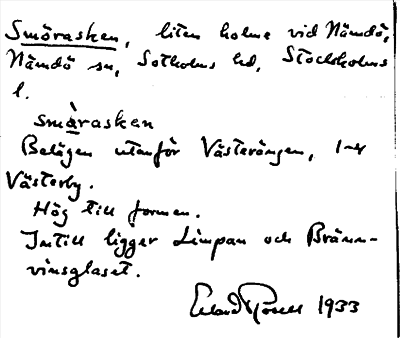 Smörasken, liten holme vid Nämdö,
Nämdö sn, Sotholms hd, Stockholms
l.
smàrasken
Belägen utanför Västerängen, 1-4
Västerby.
Hög till formen.
Intill ligger Limpan och Bränn-
vinsglaset.
Erland Rosell 1933